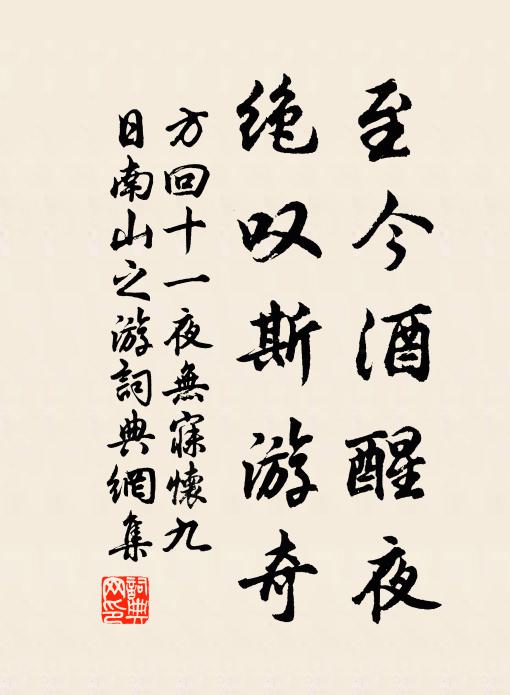 至今酒醒夜
绝叹斯游奇
方回十一夜無寐懷九
日南山之游詞典網集
詞典网印